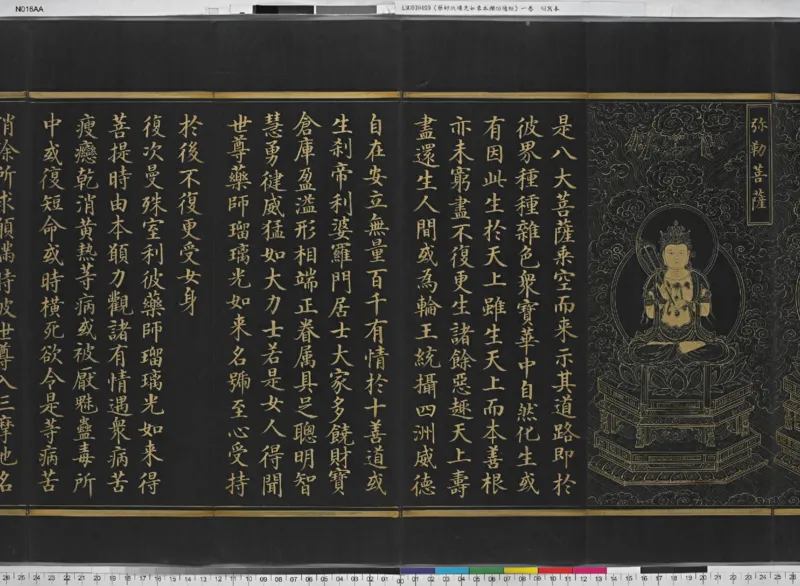 N016AA
弥勒菩薩
是八大菩薩乘空而来示其道路即於
彼界種種雜色衆寶華中自然化生或
有因此生於天上雖生天上而本善根
亦未窮盡不復更生諸餘惡趣天上壽
盡還生人間或為輪王統攝四洲威德
自在安立無量百千有情於十善道或
生刹帝利婆羅門居士大家多饒財寶
倉庫盈溢形相端正眷属具足聰明智
慧勇健威猛如大力士若是女人得聞
世尊藥師瑠璃光如来名號至心受持
於後不復更受女身
復次曼殊室利彼藥師瑠璃光如来得
菩提時由本願力觀諸有情遇衆病苦
瘦癵乾消黄熱等病或被厭魅蠱毒所
中或復短命或時橫死欲令是等病苦
消除所求願滿時彼世尊入三摩地名